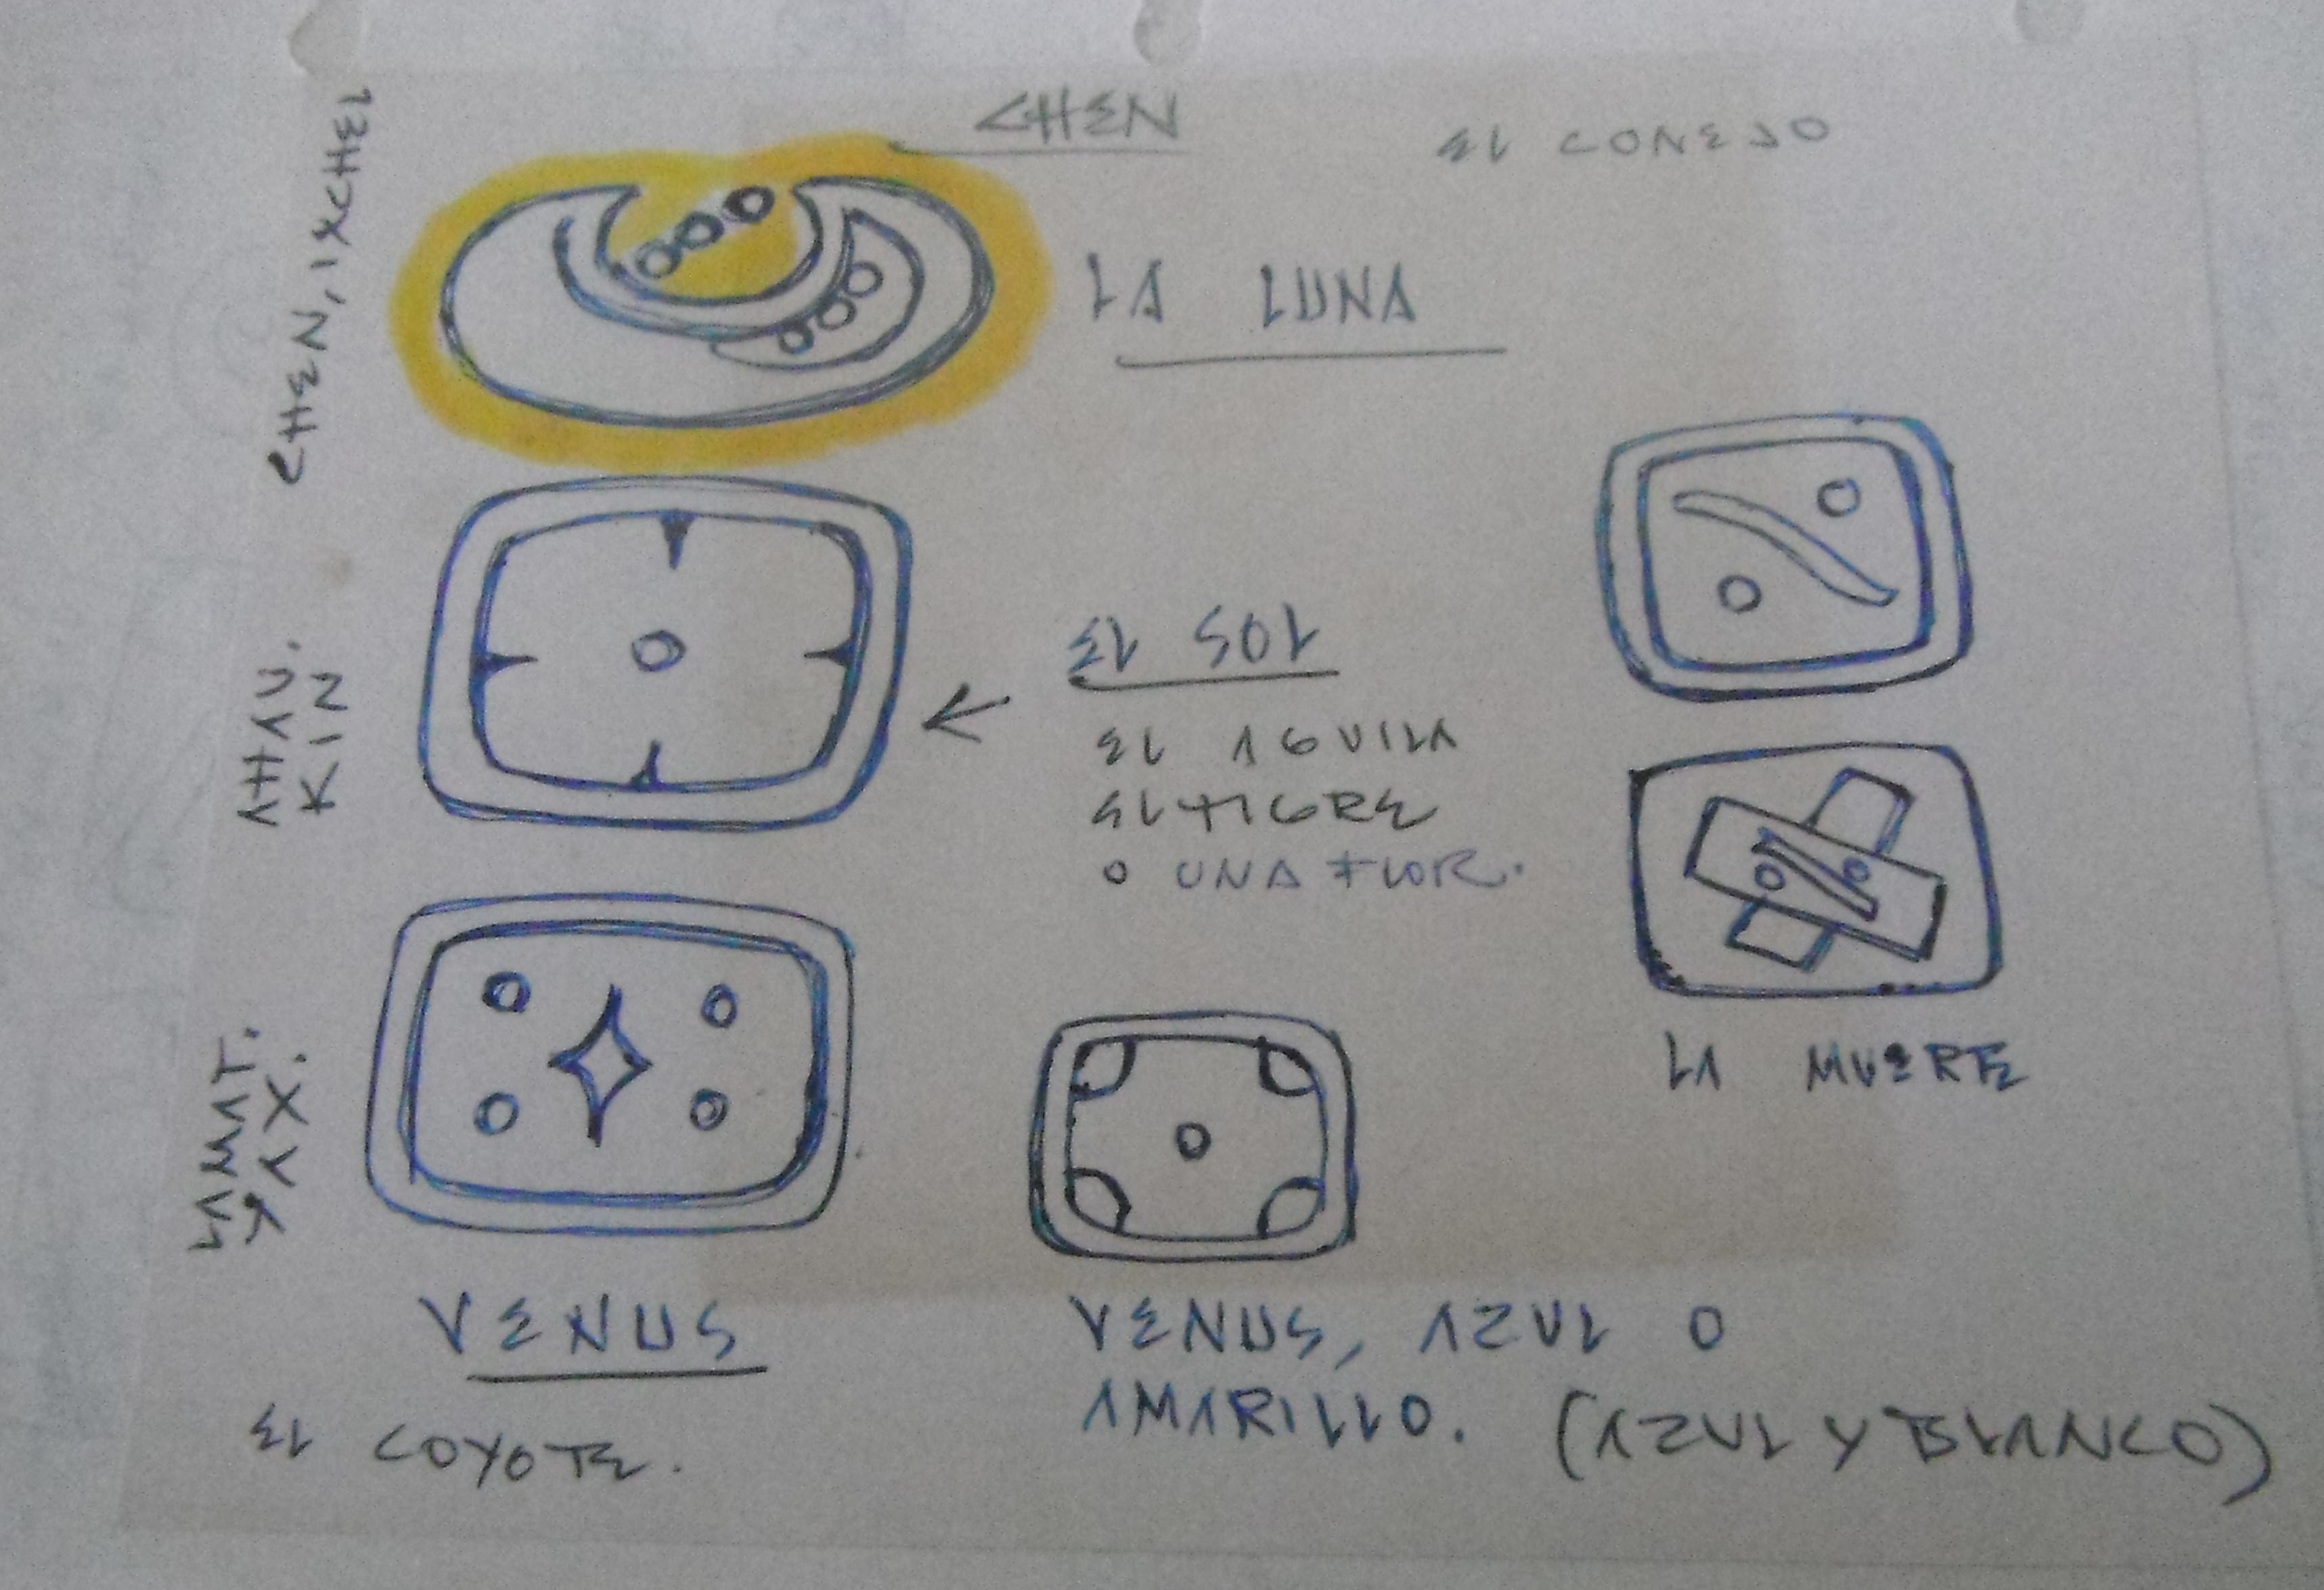 CHEN
EL CONEJO
CHEN, IXCHEL
LA LUNA
AHAU.
KIN
EL SOL
EL AGUILA
EL TIGRE
O UNA FLOR.
LA MUERTE
LAMAT.
YAX.
VENUS
EL COYOTE.
VENUS, AZUL O
AMARILLO. (AZUL Y BLANCO)